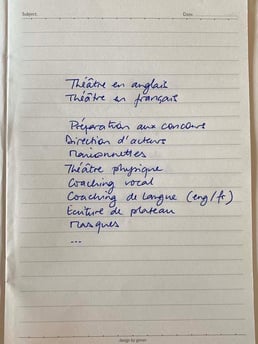 Subject.
Date.
Théâtre en anglais
Théâtre en français
Préparation aux concours
Direction d'acteurs
Marionnettes
Théâtre physique
Coaching vocal
Coaching de langue (eng/fr)
Ecriture de plateau
Masques
...
design by gmran